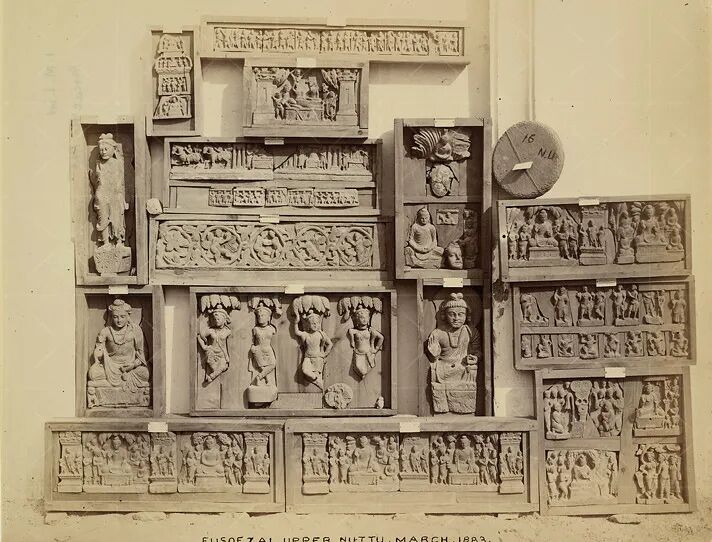 16
N.U
EUSOFZAI. UPPER NUTTU. MARCH. 1883.